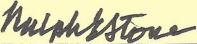 Ralph E Stone